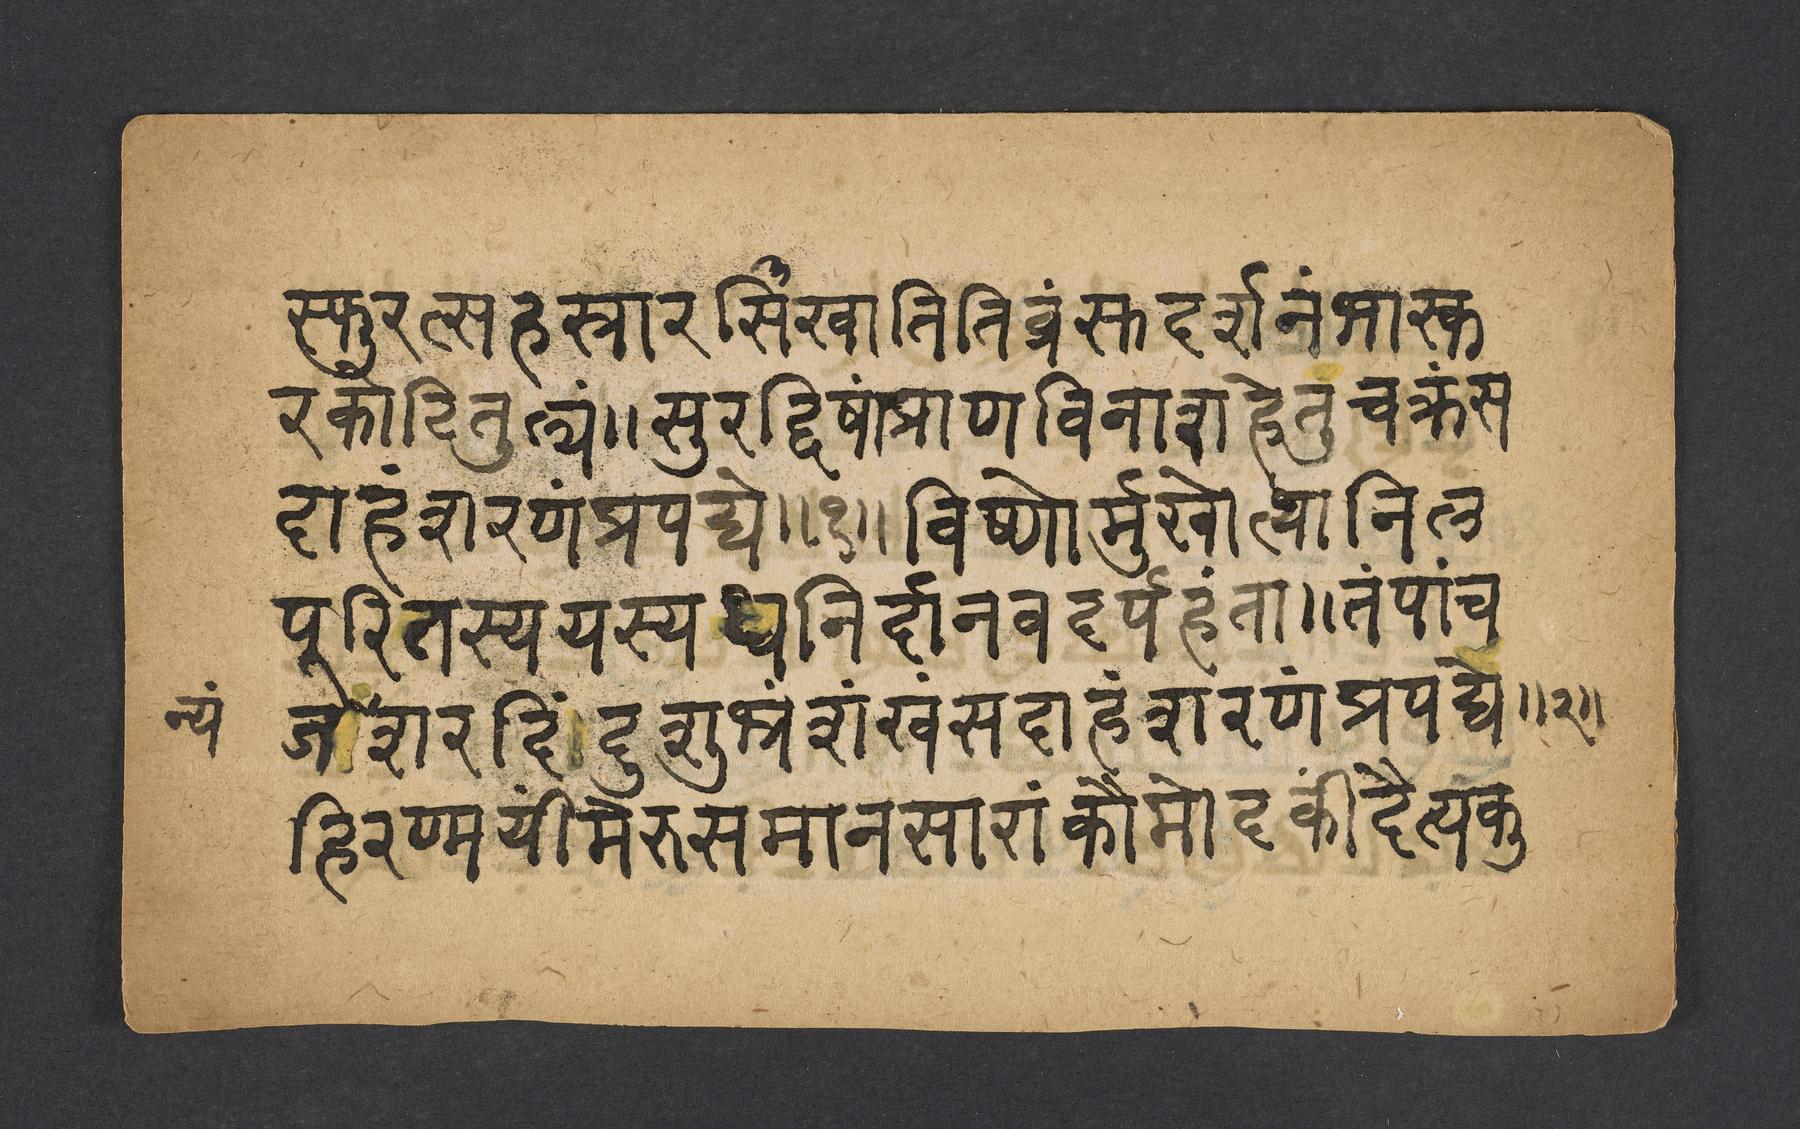 स्फुरत्सहस्त्रारसिंखातितिव्रंस्कदर्शनंभास्क
रकोटितुल्यं॥सुरद्विषांप्राणविनाशहेतुंचक्रंस
दाहंशरणंप्रपद्ये॥१॥विष्णोर्मुखोत्थानिल
पुरितस्ययस्यध्वनिर्दानवदर्पहंता॥तंपांच
न्यं
जंशरदिंदुशुभ्रंशंखंसदाहंशरणंप्रपद्ये॥२॥
हिरण्मयींमेरुसमानसारांकौमोदकींदैत्यकु